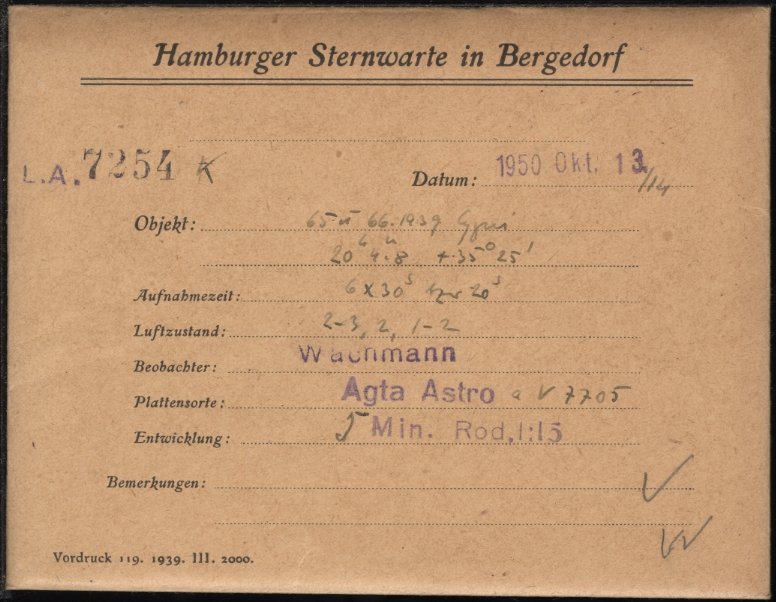 Hamburger Sternwarte in Bergedorf
L.A. 7254 K
Datum: 1950 Okt. 13./14
Objekt: 65 u 66.1939 Cygni
20ʰ 4ᵐ.8 +35° 25'
Aufnahmezeit: 6 x 30ˢ 20ˢ
Luftzustand: 2-3, 2, 1-2
Beobachter: Wachmann
Plattensorte: Agfa Astro V 7705
Entwicklung: 5 Min. Rod. 1:15
Bemerkungen:
Vordruck 119. 1939. III. 2000.